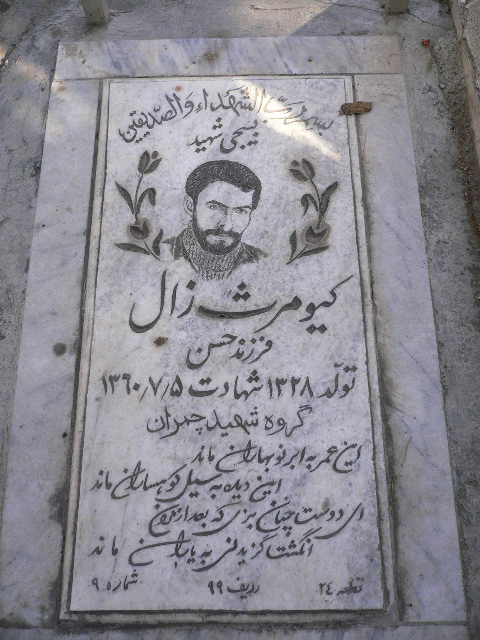 بسم رب الشهداء والصدیقین
بسیجی شهید
کیومرث زال
فرزند حسن
تولّد ۱۳۲۸ شهادت ۱۳۶۰٫۷٫۵
گروه شهید چمران
این عمر به ابر نوبهاران ماند
این دیده به سیل کوهساران ماند
ای دوست چنان بزی که بعد از مردن
انگشت گزیدنی به یاران ماند
قطعه ۲۴ ردیف ۹۹ شماره ۹